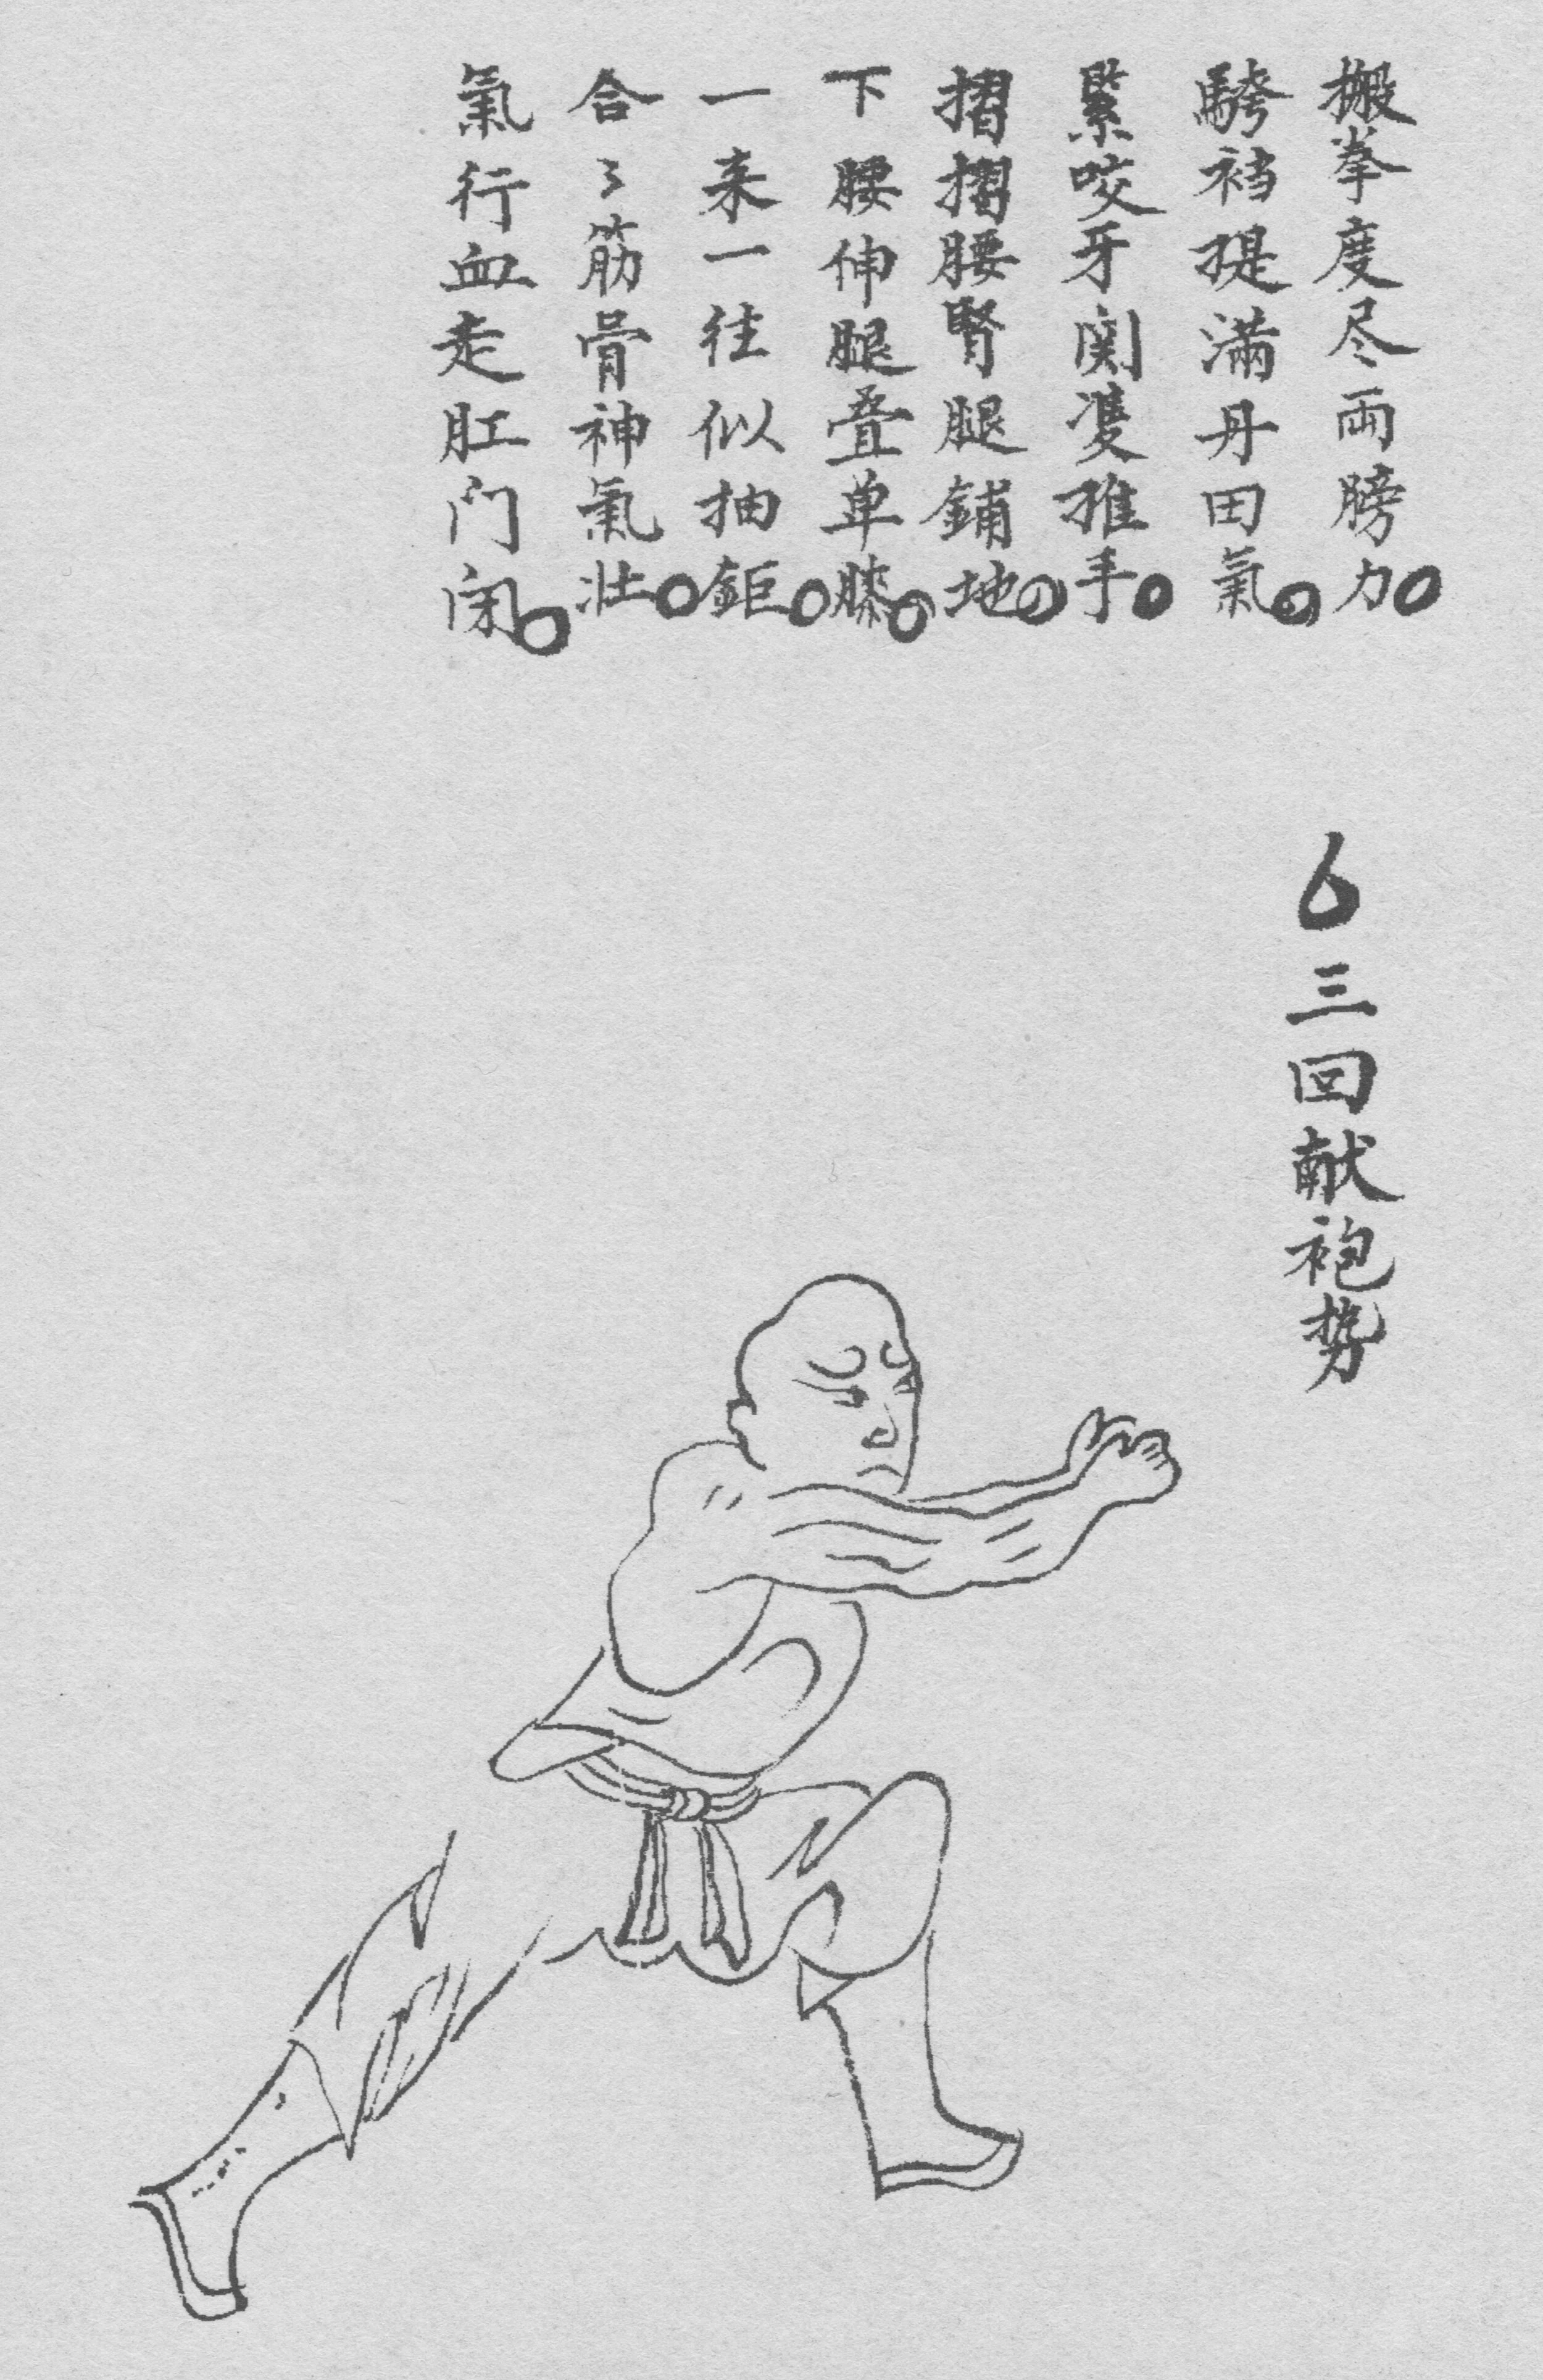 搬拳度尽両膀力。
騎裆提满丹田氣。
緊咬牙関雙推手。
摺摺腰腎腿鋪地。
下腰伸腿叠单膝。
一来一往似抽鉅。
合〻筋骨神氣壮。
氣行血走肛门闭。
6三回献袍势